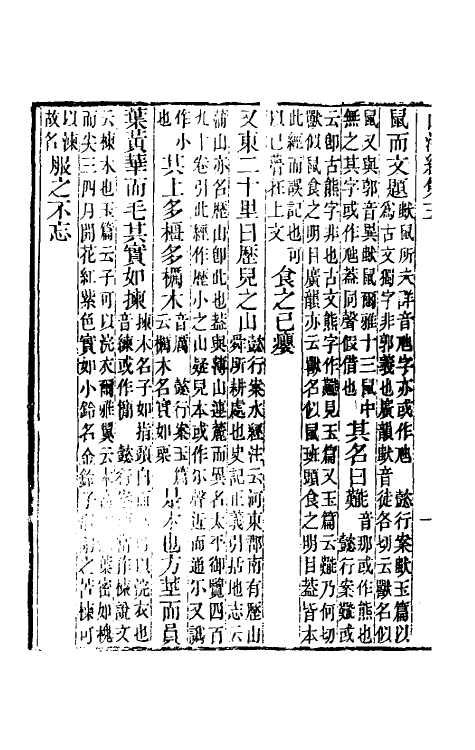 鼠而文題䶅鼠所未詳音虺字亦或作虺 懿行案䶅玉篇以
為古文獨字非郭義也廣韻䶅音徒各切云獸名似
鼠又與郭音異䶅鼠爾雅十三鼠中
無之其字或作虺蓋同聲假借也
其名曰㔮音那或作熊也
懿行案㔮或
云卽古熊字非也古文熊字作䖻見玉篇又玉篇云㔮乃何切
獸似鼠食之明目廣韻亦云獸名似鼠班頭食之明目蓋皆本
此經而誤記也可
以已瞢在上文
食之已癭
又東二十里曰歷兒之山懿行案水經注云河東郡南有歷山
舜所耕處也史記正義引括地志云
蒲山亦名歷山卽此也蓋與薄山連麓而異名太平御覽四百
九十卷引此經作歷小之山疑兒本或作尒聲近而通尒又譌
作小
其上多橿多櫔木音厲 懿行案玉篇
云櫔木名實如栗
是木也方莖而員
葉黃華而毛其實如揀揀木名子如指頭白而黏可以浣衣也
音練或作簡 懿行案揀當作楝說文
云楝木也玉篇云子可以浣衣爾雅翼云木 葉密如槐
而尖三四月開花紅紫色實如小鈴名金鈴子俗謂之苦楝可
以湅
故名
服之不忘